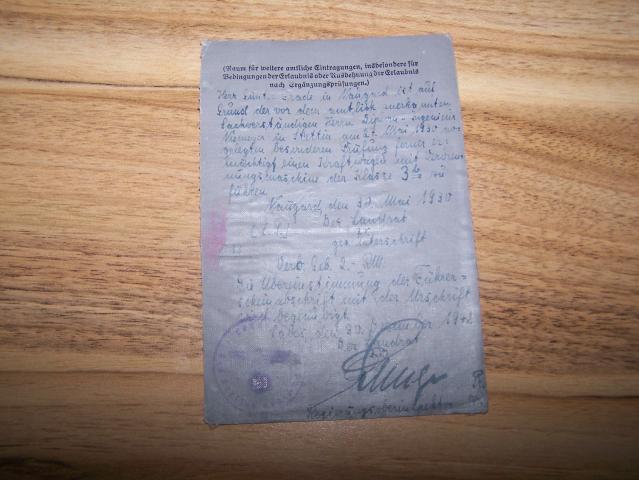 (Raum für weitere amtliche Eintragungen, insbesondere für
Bedingungen der Erlaubnis oder Ausdehnung der Erlaubnis
nach Ergänzungsprüfungen.)
Herr in Naugard ist auf
Grund der vor dem amtlich anerkannten
Sachverständigen Herrn Diplom-Ingenieur
in Stettin am 27. Mai 1930 ab-
gelegten besonderen Prüfung ferner er-
mächtigt einen Kraftwagen mit Verbren-
nungsmaschine der Klasse 3b zu
führen
Naugard, den 30. Mai 1930
Der Landrat
gez. Unterschrift
Verb. Geb. 2.- RM.
Die Übereinstimmung der Führer-
scheinabschrift mit der Urschrift
wird beglaubigt.
Labes, den 30. 1942
Der Landrat
Regierungsoberinspektor